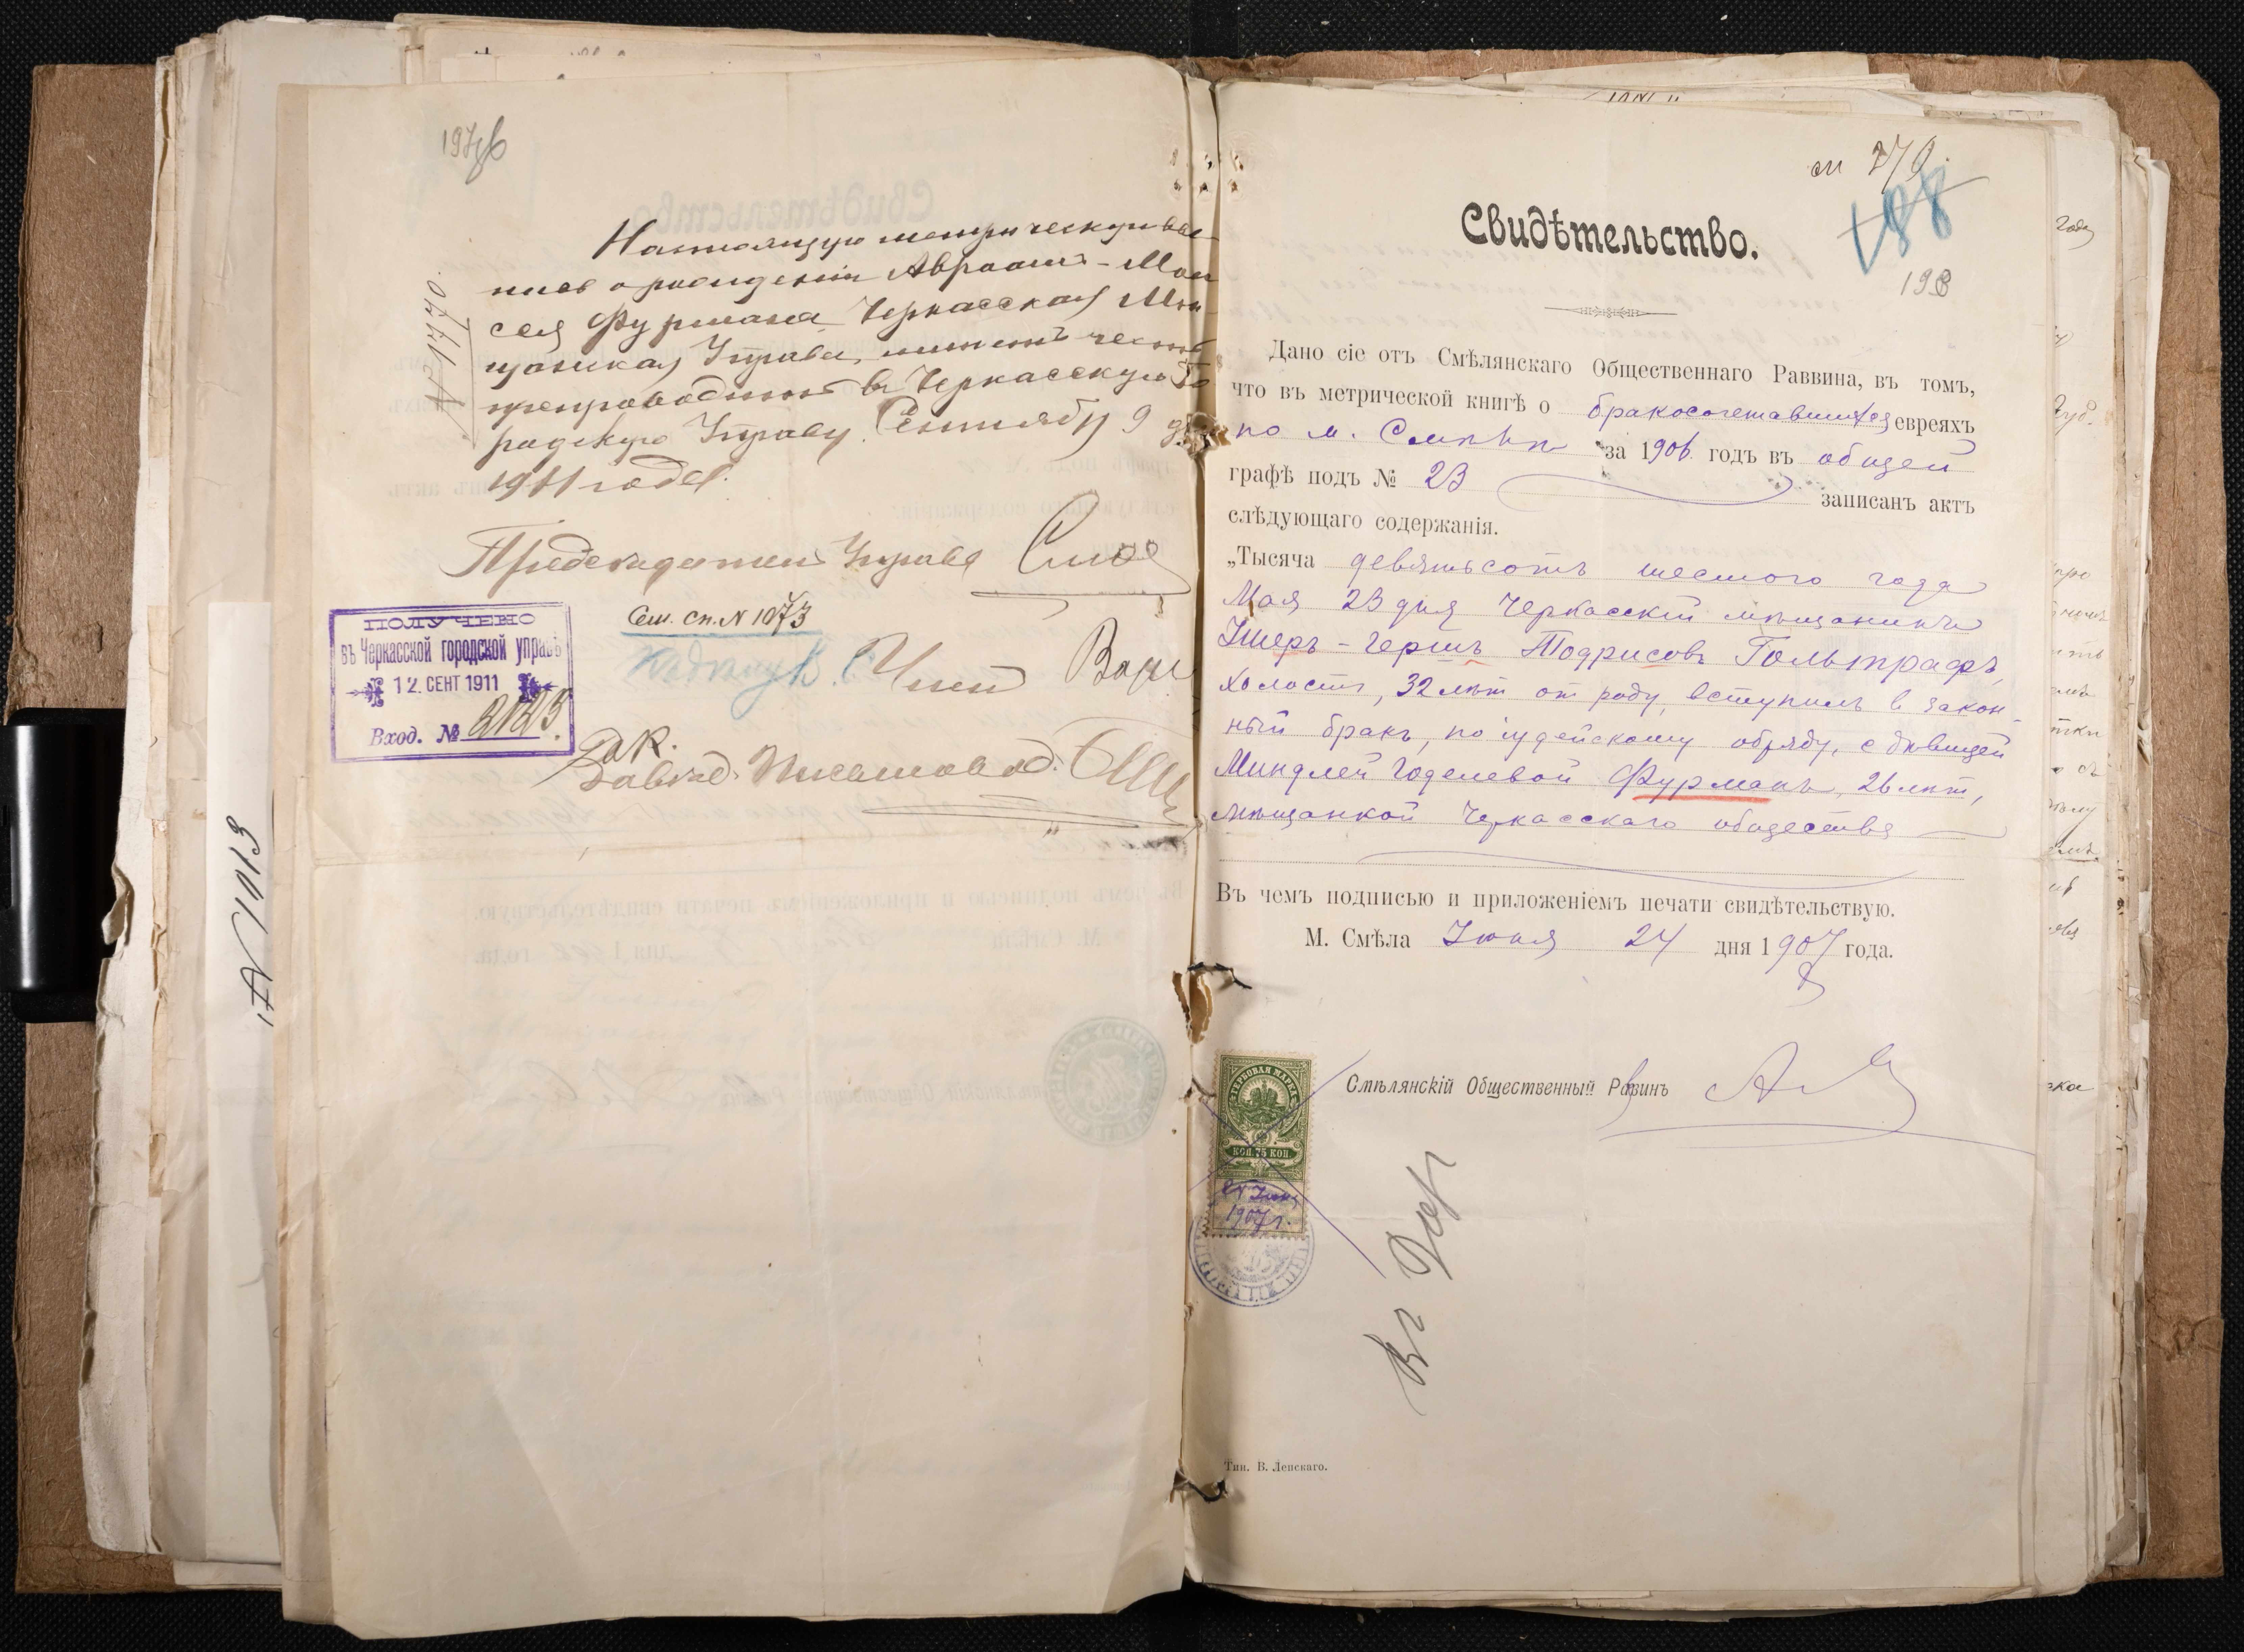 Настоящую метрическую вы-
пись о рождении Авраама-Мои
сея Фурмана Черкасская Мѣ-
щанская Управа, имѣетъ честь
препроводить въ Черкасскую Го
родскую Управу. Сентября 9 дня
1911 года.
№ 1770.
Предсѣдатель Управы
Сем. сп. № 1073
Члены
Завѣд. Письмовод.
ПОЛУЧЕНО
въ Черкасской городской управѣ
12. СЕНТ 1911
Вход. №
№ 1013
188
198
Свидѣтельство.
Дано сіе отъ Смѣлянскаго Общественнаго Раввина, въ томъ,
что въ метрической книгѣ о бракосочетавшихся евреяхъ
по м. Смѣлѣ за 1906 годъ въ общей
графѣ подъ № 23 записанъ актъ
слѣдующаго содержанія.
„Тысяча девятьсотъ шестого года
Мая 23 дня Черкасскій мѣщанинъ
Ушеръ-Гершъ Тодрисовъ Гольтрафъ,
холостъ, 32 лѣт от роду, вступилъ в закон-
ный бракъ, по іудейскому обряду, с дѣвицей
Миндлей Годелевой Фурманъ, 26 лѣт,
мѣщанкой Черкасскаго общества
Въ чемъ подписью и приложеніемъ печати свидѣтельствую.
М. Смѣла Іюня 24 дня 1907 года.
Смѣлянскій Общественный Равинъ
ГЕРБОВАЯ МАРКА
КОП. 75 КОП.
24 Іюня
1907 г.
Тип. В. Лепскаго.